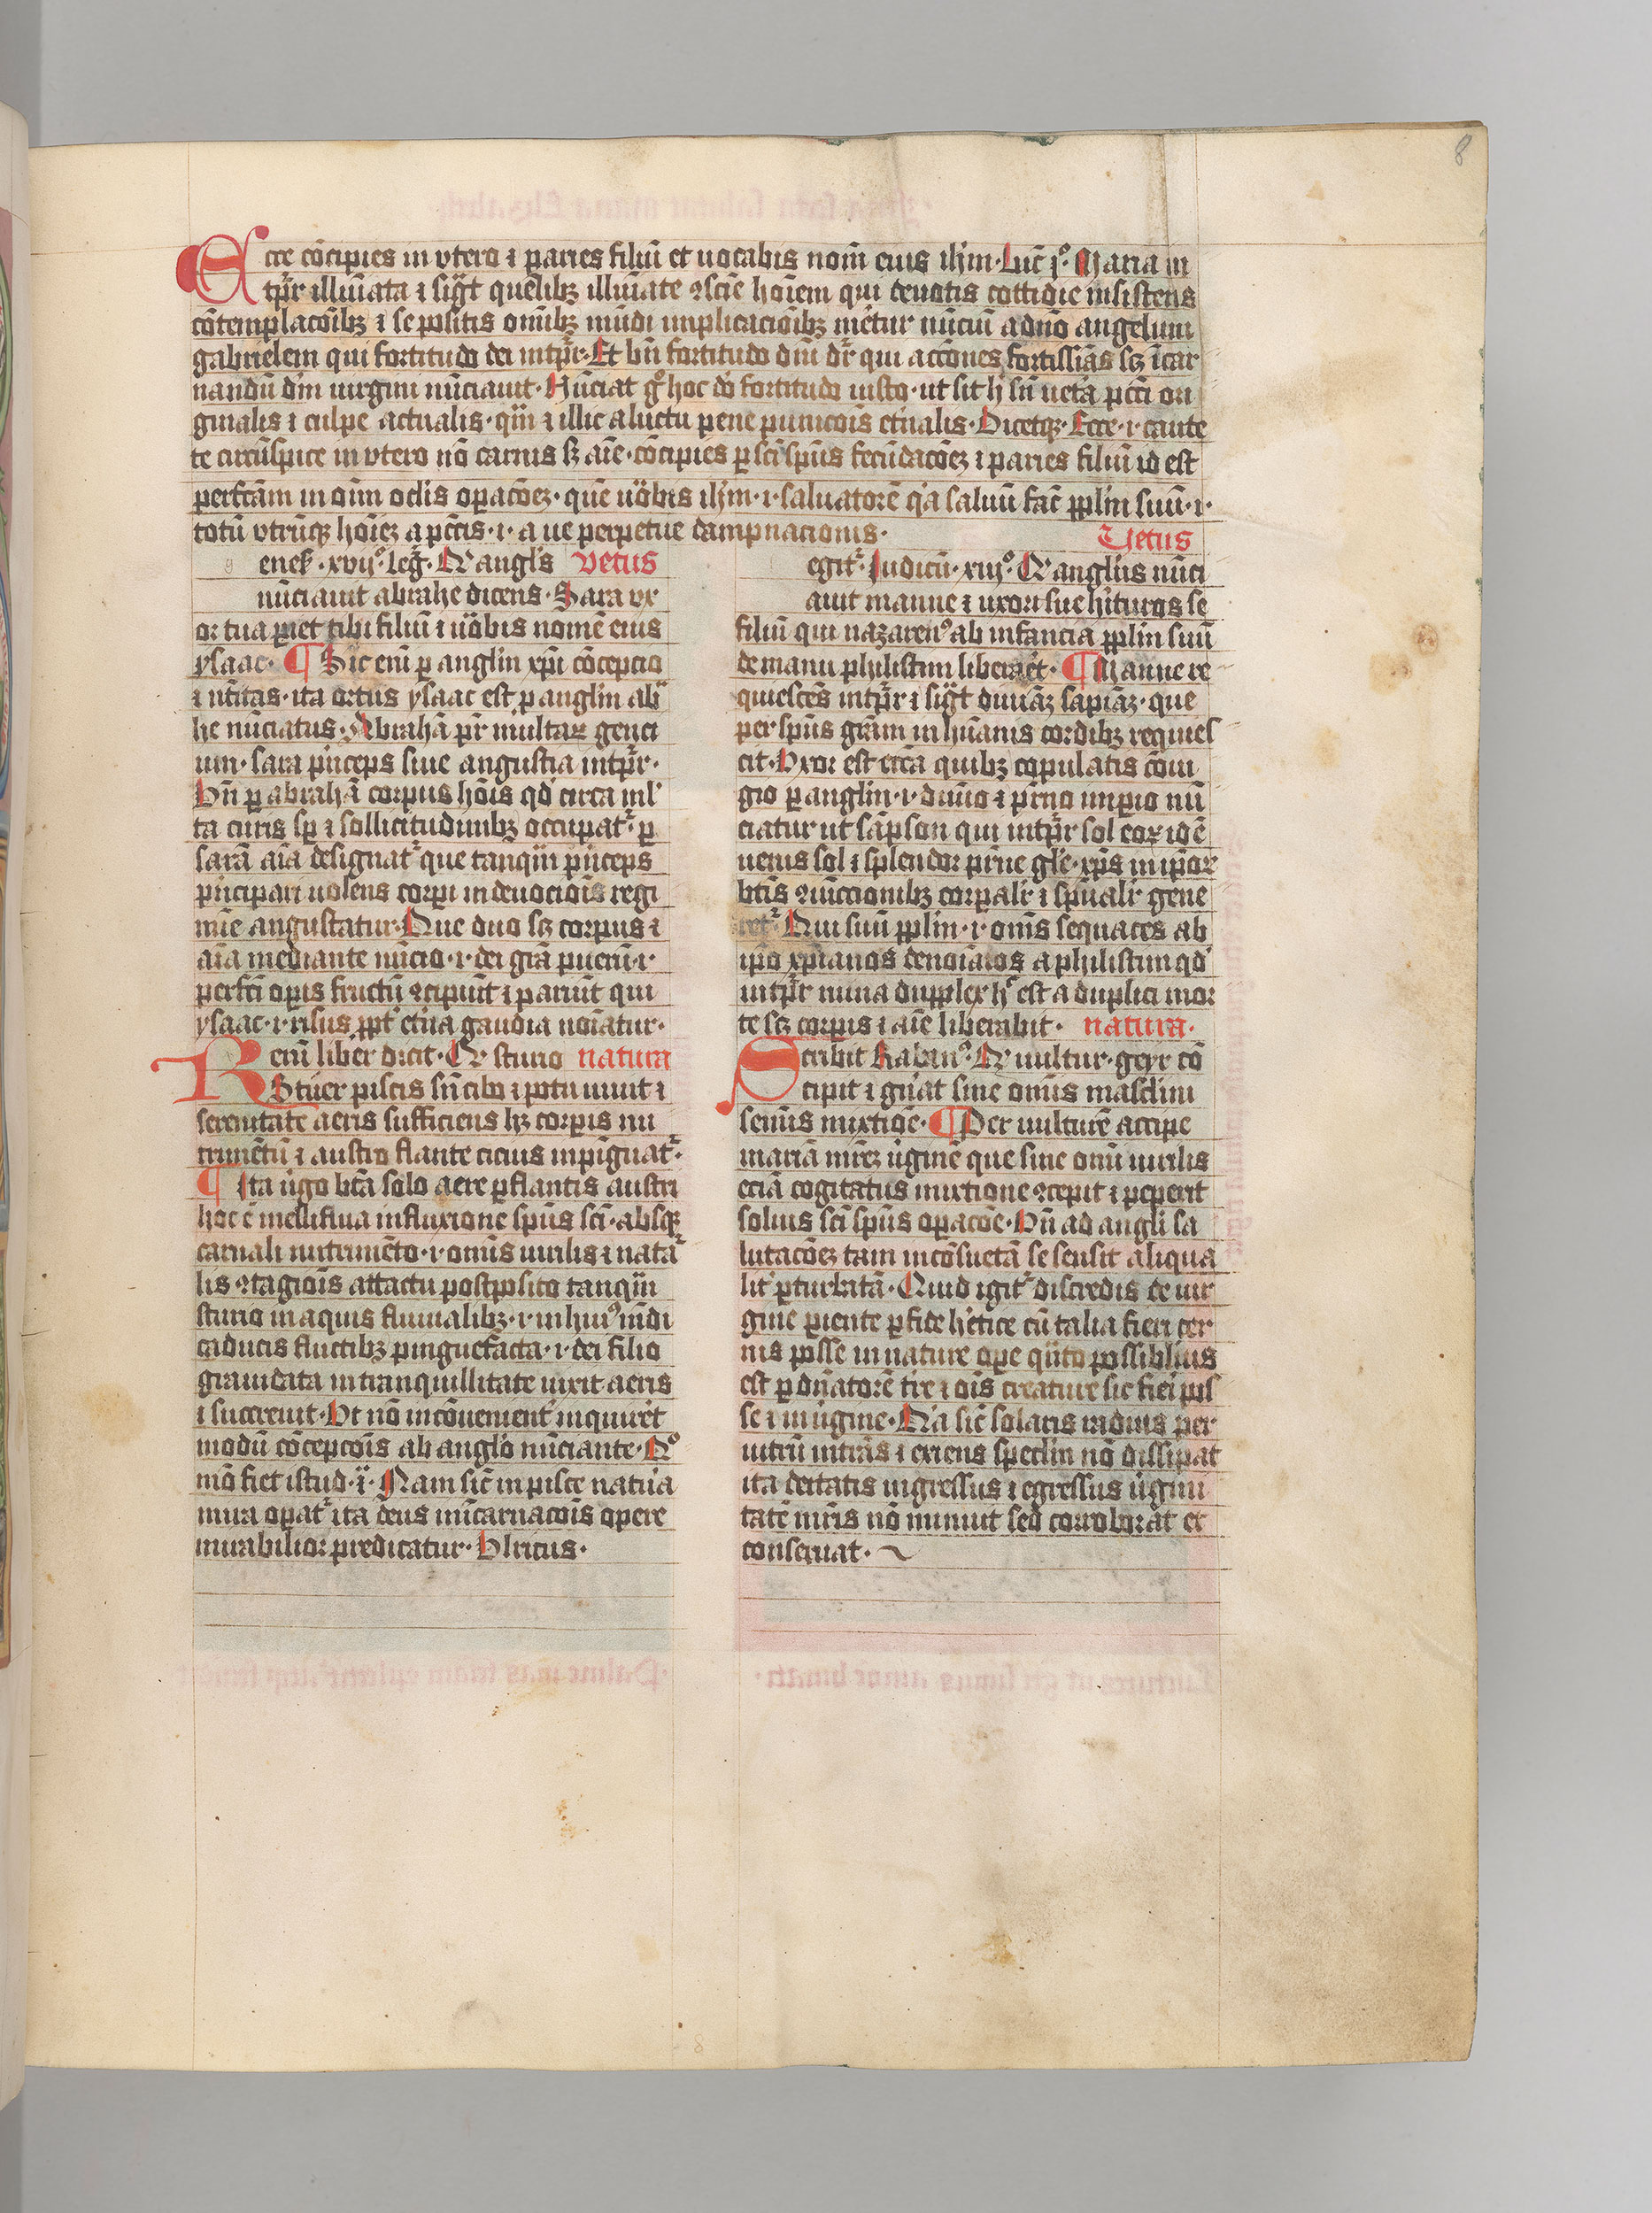 8
Ecce co̅cipies in vtero ⁊ paries filiu̅ et uocabis nom̅ eius ih̅m · Luc̅ j° · Maria in
tp̅r illu̅i̅ata ⁊ sig̅t que̅libꝫ illu̅i̅ate ꝯscie̅ ho̅iem qui deuotis cottidie insistens
co̅templaco̅ibꝫ ⁊ se positis om̅ibꝫ mu̅di implicacio̅ibꝫ me̅tur nu̅ciu̅ a dn̅o angelum
gabrielem qui fortitudo dei intp̅r · Et bn̅ fortitudo diu̅ dr̅ qui acco̅nes fortissi̅as scꝫ i̅car
nandu̅ dm̅ uirgini nu̅ciauit · Nu̅ciat gͦ hoc d̅i fortitudo iusto · ut sit h̅ sn̅ ue̅ta pcc̅i ori
ginalis ⁊ culpe actualis · qm̅ ⁊ illic a luctu pene punico̅is et̅nalis · Dicetqꝫ · Ecce · i · caute
te circu̅spice in vtero no̅ carnis sꝫ ai̅e · co̅cipies ꝑ sc̅i sp̅us fecu̅daco̅eꝫ ⁊ paries filiu̅ id est
perfc̅am in oi̅m oclis opaco̅eꝫ · que̅ uo̅bis ih̅m · i · saluatore̅ q̅a saluu̅ fac̅ pp̅lm suu̅ · i ·
totu̅ vtru̅qꝫ ho̅ieꝫ a pcc̅is · i · a ue perpetue dampnacionis ·
enes̅ · xvij° · leg̅ · Qꝰ angl̅s vetus
nu̅ciauit abrahe dicens · Sara vx
or tua pi̅et tibi filiu̅ ⁊ uo̅bis nome̅ eius
ysaac · ¶ Sic eni̅ ꝑ angl̅m xp̅i co̅cepcio
⁊ nti̅itas · ita ortus ysaac est ꝑ angl̅m ab̅
he nu̅ciatus · Abraha̅ pr̅ multaꝝ genci
um · sara pi̅nceps siue angustia intp̅r ·
Vn̅ ꝑ abraha̅ corpus ho̅is qd̅ circa ml̅
ta curis sp̅ ⁊ sollicitudinibꝫ occupat̅ · ꝑ
sara̅ ai̅a designat̅ que tanqm̅ pi̅nceps
pi̅ncipari uolens corpi̅ in deuocio̅is regi
mi̅e angustatur · Que duo scꝫ corpus ⁊
ai̅a mediante nu̅cio · i · dei gr̅a pueni̅ · i ·
perfc̅i opi̅s fructu̅ ꝯcipiu̅t ⁊ pariu̅t qui
ysaac · i · risus ppt̅ et̅na gaudia no̅iatur ·
Reru̅ liber dicit · Qꝰ sturio natura
Stuer piscis sn̅ cibo ⁊ potu uiuit ⁊
serenitate aeris sufficiens hꝫ corpi̅s nu
trime̅tu̅ ⁊ austro flante cicius inpi̅gnat̅ ·
¶ Ita u̅go bt̅a solo aere ꝑflantis austri
hoc e̅ melliflua influxione sp̅us sc̅i · absqꝫ
carnali nutrime̅to · i · oni̅s uirilis ⁊ nata̅
lis ꝯtagio̅is attactu postposito tanqm̅
sturio in aquis fluuialibꝫ · i · in hui° mu̅di
caducis fluctibꝫ pinguefacta · i · dei filio
grauidata in tranquillitate uixit aeris
⁊ succreuit · Vt no̅ inco̅uenient̅ inquire̅t
modu̅ co̅cepco̅is ab angl̅o nu̅ciante · Q°
mo̅ fiet istud · ⁊c̅ · Nam sic̅ in pisce natu̅a
mira opat̅ ita deus in i̅carnaco̅is opere
mirabilior predicatur · Vlricus ·
Vetus
egit̅ · Judicu̅ · xiij° · Qꝰ angl̅us nu̅ci
auit manue ⁊ uxori sue hi̅turos se
filiu̅ qui nazaren° ab infancia pp̅lm suu̅
de manu philistim liberaret · ¶ Manue re
quiesce̅s intp̅r ⁊ sig̅t diuina̅ꝫ sapia̅ꝫ · que
per sp̅us gra̅m in hu̅anis cordibꝫ requies
cit · Vxor est cr̅ca quibꝫ copulatis co̅iu
gio ꝑ angl̅m · i · diui̅o ⁊ pt̅no impi̅o nu̅
ciatur ut sa̅pson qui intp̅r sol eoꝝ id e̅
uerus sol ⁊ splendor pt̅ne gl̅e · xp̅s in ip̅oꝝ
bt̅is ꝯiu̅ccionibꝫ corpali̅r ⁊ sp̅uali̅r gene
ret̅ · Qui suu̅ pp̅lm · i · om̅s sequaces ab
ip̅o xp̅ianos deno̅iatos a philistim qd̅
intp̅r ruina dupplex h̅ est a duplici mor
te scꝫ corpi̅s ⁊ ai̅e liberabit · natura ·
Scribit Raban° · Qꝰ uultur · geyr co̅
cipit ⁊ gn̅at sine om̅is masclini
semi̅s mixtio̅e · ¶ Per uulture̅ accipe
maria̅ mr̅eꝫ u̅gine̅ que sine om̅i uirilis
ecia̅ cogitatus mixtione ꝯcepit ⁊ peperit
solius sc̅i sp̅us opaco̅e · Vn̅ ad angl̅i sa
lutaco̅eꝫ tam inco̅sueta̅ se sensit aliqua
lit̅ ꝑturbata̅ · Quid igit̅ discredis de uir
gine pi̅ente ꝑfide h̅etice cu̅ talia fieri cer
nis posse in nature ope̅ qu̅to possibl̅ius
est ꝑ dn̅atore̅ tr̅e ⁊ oi̅s creature sic fiei̅ pos
se ⁊ in u̅gine · Na̅ sic̅ solaris radius per
uitru̅ intra̅s ⁊ exiens specl̅m no̅ dissipat
ita deitatis ingressus ⁊ egressus u̅gini
tate̅ mr̅is no̅ minuit sed corroborat et
conseruat ·